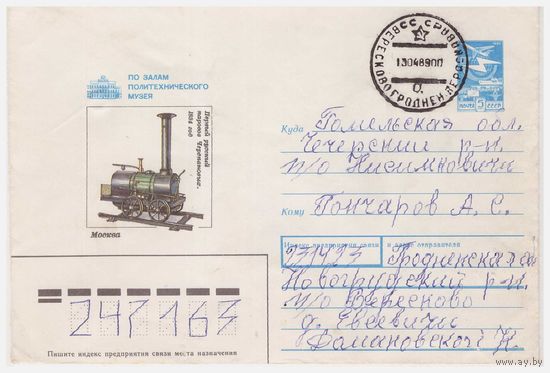 ПО ЗАЛАМ
ПОЛИТЕХНИЧЕСКОГО
МУЗЕЯ
Первый русский
паровоз Черепановых.
1834 год
Москва
13048900
ПОЧТА 5 СССР
Куда Гомельская обл.
Чечерский р-н.
п/о Нисимковичи
Кому Гончаров А. С.
Индекс предприятия связи и адрес отправителя
231423 Гродненская
Новогрудский р-н.
п/о Вересково
д. Евсевичи
Романовской Н.
247163
Пишите индекс предприятия связи места назначения
www.ay.by